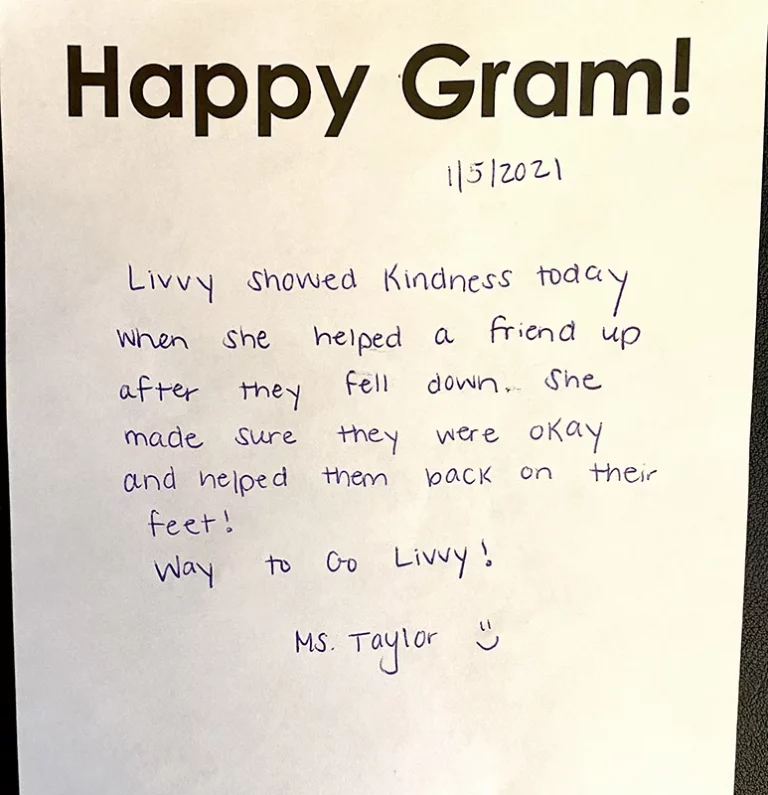 Happy Gram!
1/5/2021
Livvy showed kindness today
when she helped a friend up
after they fell down. She
made sure they were okay
and helped them back on their
feet!
Way to Go Livvy!
Ms. Taylor